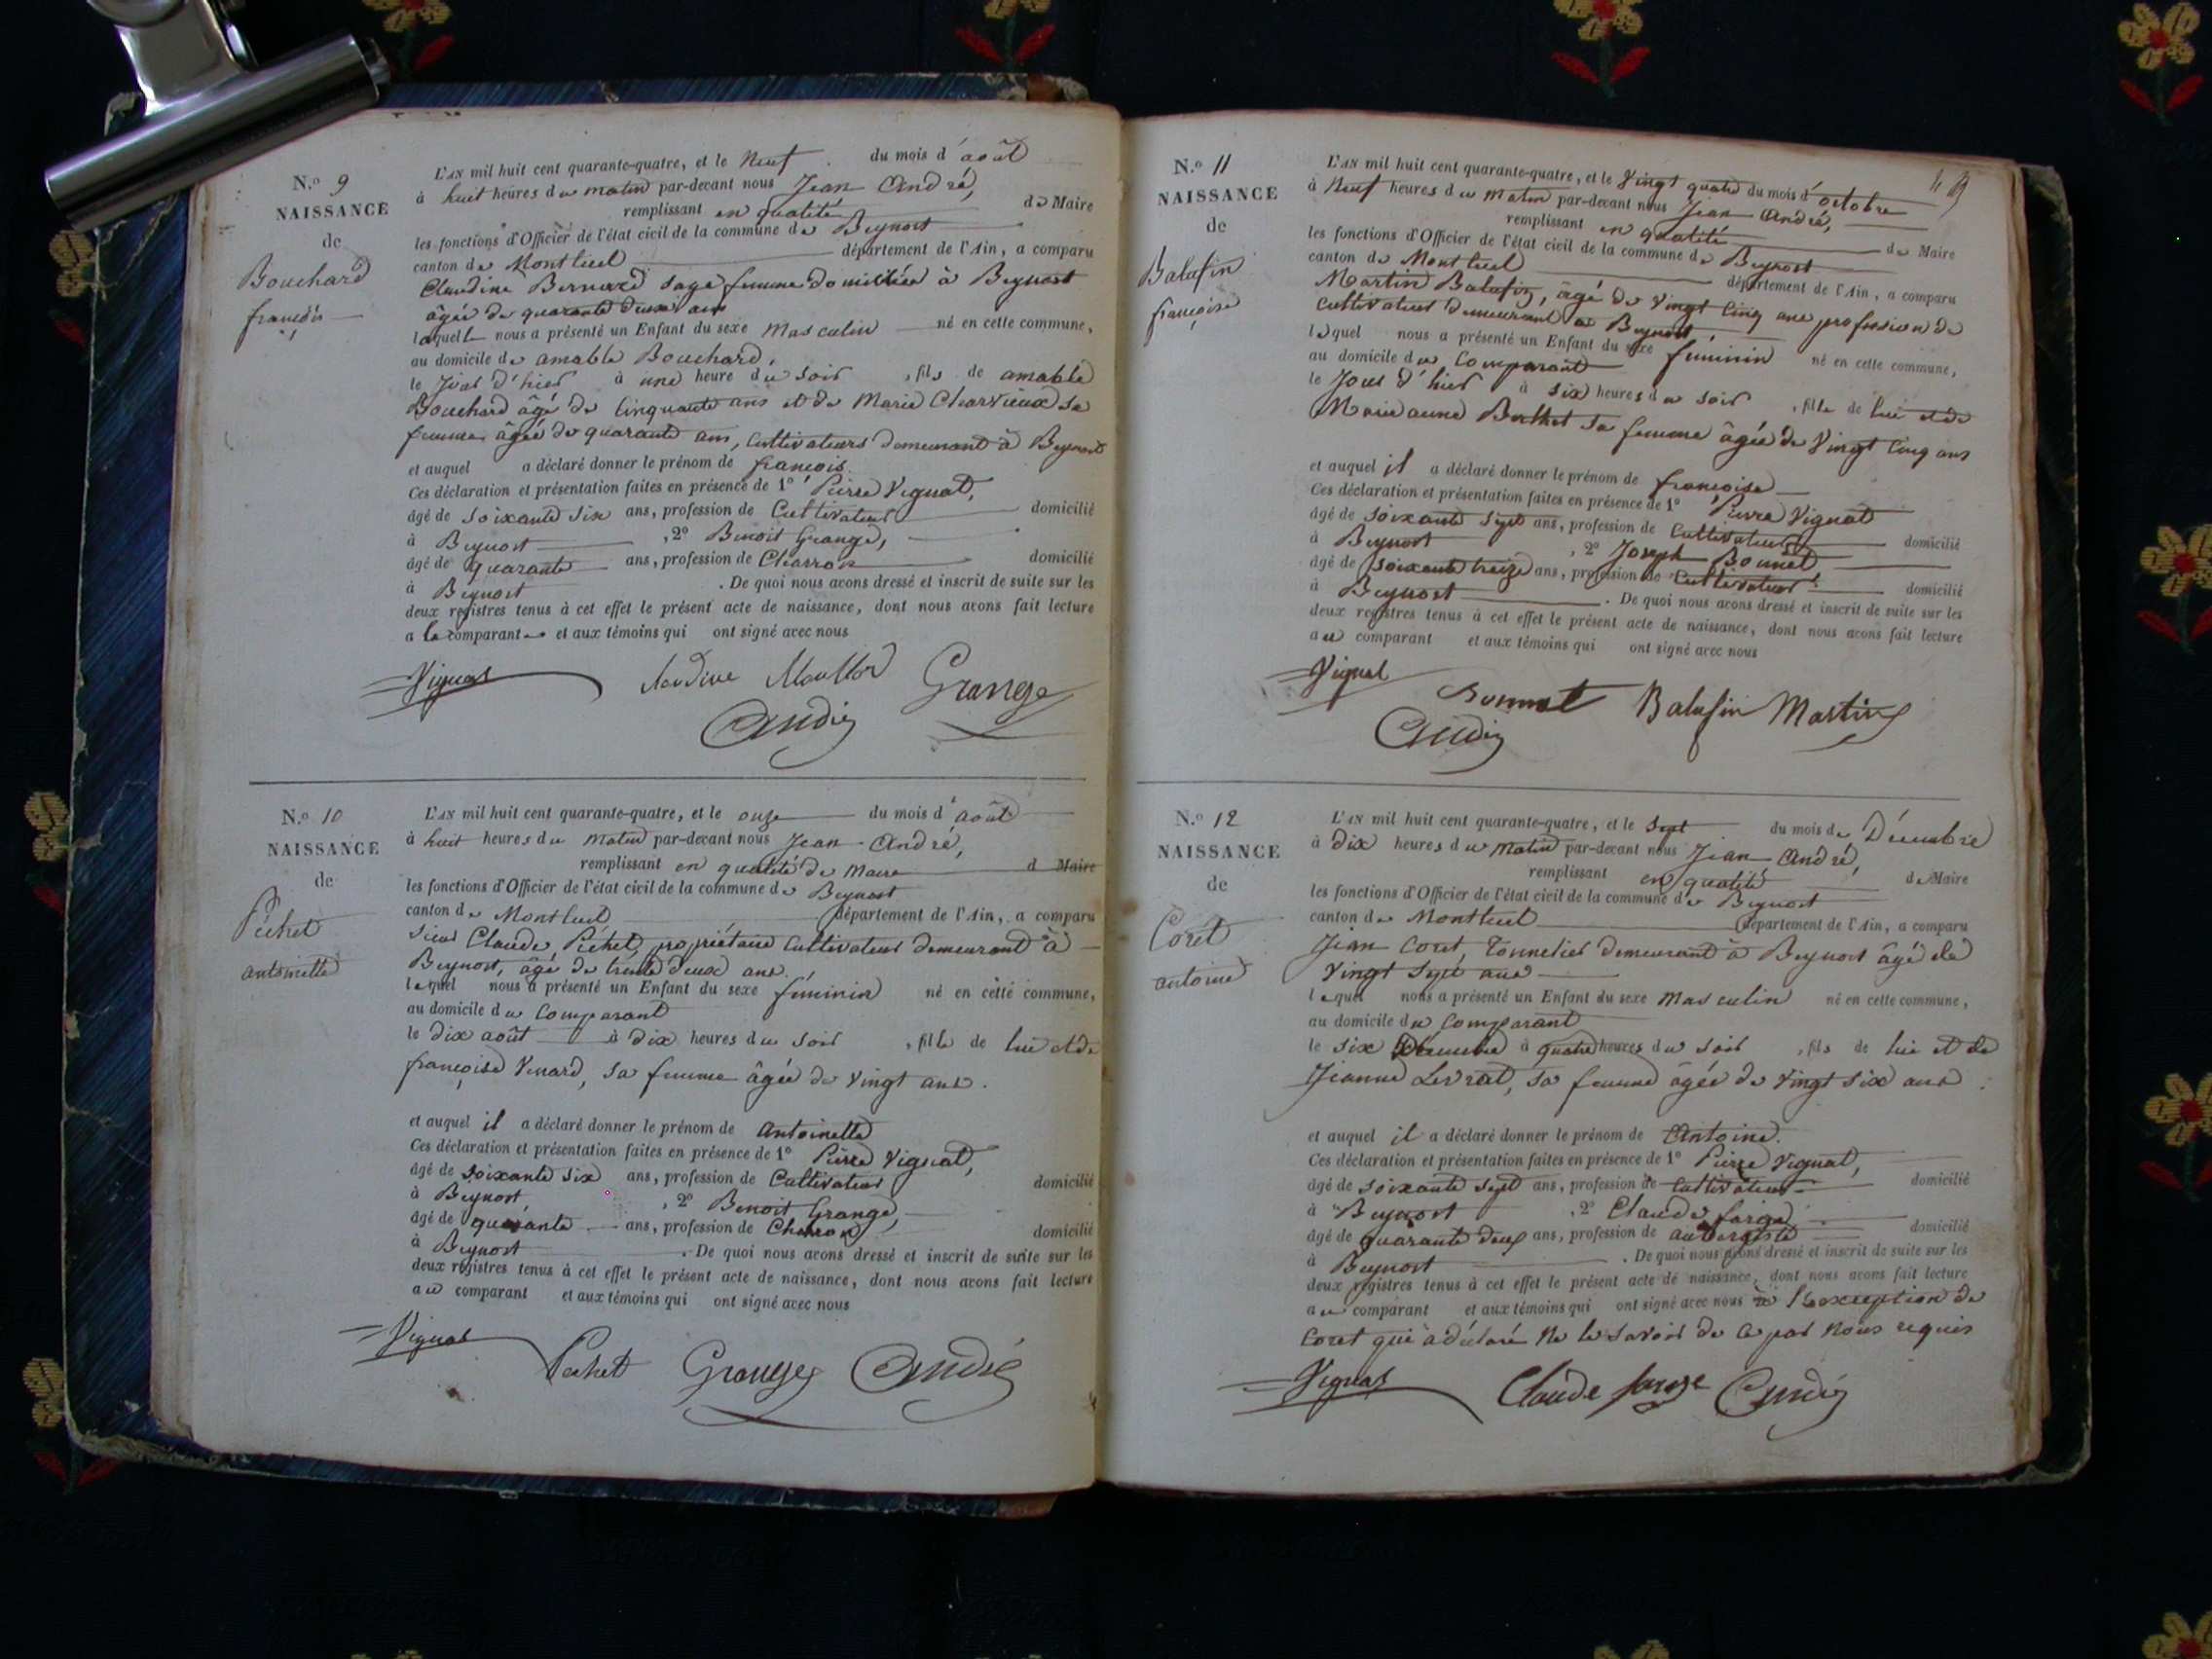 N.º 9
NAISSANCE
de
Bouchard
françois
L'AN mil huit cent quarante-quatre, et le Neuf du mois d'août
à huit heures du matin par-devant nous Jean André,
remplissant en qualité de Maire
les fonctions d'Officier de l'état civil de la commune de Beynost
canton de Montluel département de l'Ain, a comparu
Claudine Bernard sage femme domiciliée à Beynost
âgée de quarante deux ans
laquelle nous a présenté un Enfant du sexe Masculin né en cette commune,
au domicile de amable Bouchard,
le Jour d'hier à une heure du soir , fils de amable
Bouchard âgé de Cinquante ans et de Marie Charvieux sa
femme âgée de quarante ans, Cultivateurs demeurant à Beynost
et auquel a déclaré donner le prénom de françois
Ces déclaration et présentation faites en présence de 1º Pierre Vignat,
âgé de soixante six ans, profession de Cultivateur domicilié
à Beynost , 2º Benoit Grange,
âgé de quarante ans, profession de Charron domicilié
à Beynost . De quoi nous avons dressé et inscrit de suite sur les
deux registres tenus à cet effet le présent acte de naissance, dont nous avons fait lecture
a la comparante et aux témoins qui ont signé avec nous
Vignat Grange
André
N.º 10
NAISSANCE
de
Péchet
antoinette
L'AN mil huit cent quarante-quatre, et le onze du mois d'août
à huit heures du matin par-devant nous Jean André,
remplissant en qualité de Maire d Maire
les fonctions d'Officier de l'état civil de la commune de Beynost
canton de Montluel département de l'Ain, a comparu
Sieur Claude Péchet, propriétaire Cultivateur demeurant à
Beynost, âgé de trente deux ans.
lequel nous a présenté un Enfant du sexe féminin né en cette commune,
au domicile du Comparant
le dix août à dix heures du soir , fille de lui et de
françoise Venard, sa femme âgée de vingt ans.
et auquel il a déclaré donner le prénom de Antoinette
Ces déclaration et présentation faites en présence de 1º Pierre Vignat,
âgé de soixante six ans, profession de Cultivateur domicilié
à Beynost , 2º Benoit Grange,
âgé de quarante ans, profession de Charron domicilié
à Beynost . De quoi nous avons dressé et inscrit de suite sur les
deux registres tenus à cet effet le présent acte de naissance, dont nous avons fait lecture
au comparant et aux témoins qui ont signé avec nous
Vignat Pechet Grange André
N.º 11
NAISSANCE
de
Balufin
françoise
L'AN mil huit cent quarante-quatre, et le Vingt quatre du mois d'octobre
à Neuf heures du Matin par-devant nous Jean André,
remplissant en qualité de Maire
les fonctions d'Officier de l'état civil de la commune de Beynost
canton de Montluel département de l'Ain, a comparu
Martin Balufin, âgé de Vingt Cinq ans profession de
Cultivateur demeurant à Beynost
lequel nous a présenté un Enfant du sexe féminin né en cette commune,
au domicile du Comparant
le Jour d'hier à six heures du soir , fille de lui et de
Marie anne Berthet sa femme âgée de Vingt Cinq ans
et auquel il a déclaré donner le prénom de françoise
Ces déclaration et présentation faites en présence de 1º Pierre Vignat
âgé de soixante sept ans, profession de Cultivateur domicilié
à Beynost , 2º Joseph Bonnet
âgé de soixante treize ans, profession de Cultivateur domicilié
à Beynost . De quoi nous avons dressé et inscrit de suite sur les
deux registres tenus à cet effet le présent acte de naissance, dont nous avons fait lecture
au comparant et aux témoins qui ont signé avec nous
Vignat Bonnet Balufin Martin
André
N.º 12
NAISSANCE
de
Coret
antoine
L'AN mil huit cent quarante-quatre, et le Sept du mois de Décembre
à dix heures du Matin par-devant nous Jean André,
remplissant en qualité de Maire
les fonctions d'Officier de l'état civil de la commune de Beynost
canton de Montluel département de l'Ain, a comparu
Jean Coret, Tonnelier demeurant à Beynost âgé de
Vingt Sept ans
lequel nous a présenté un Enfant du sexe Masculin né en cette commune,
au domicile du Comparant
le six Décembre à quatre heures du soir , fils de lui et de
Jeanne Levrat, sa femme âgée de Vingt six ans
et auquel il a déclaré donner le prénom de Antoine.
Ces déclaration et présentation faites en présence de 1º Pierre Vignat,
âgé de soixante sept ans, profession de Cultivateur domicilié
à Beynost , 2º Claude farge
âgé de quarante deux ans, profession de aubergiste domicilié
à Beynost . De quoi nous avons dressé et inscrit de suite sur les
deux registres tenus à cet effet le présent acte de naissance, dont nous avons fait lecture
au comparant et aux témoins qui ont signé avec nous à l'exception de
Coret qui a déclaré Ne le savoir de ce par Nous requis
Vignat Claude farge André